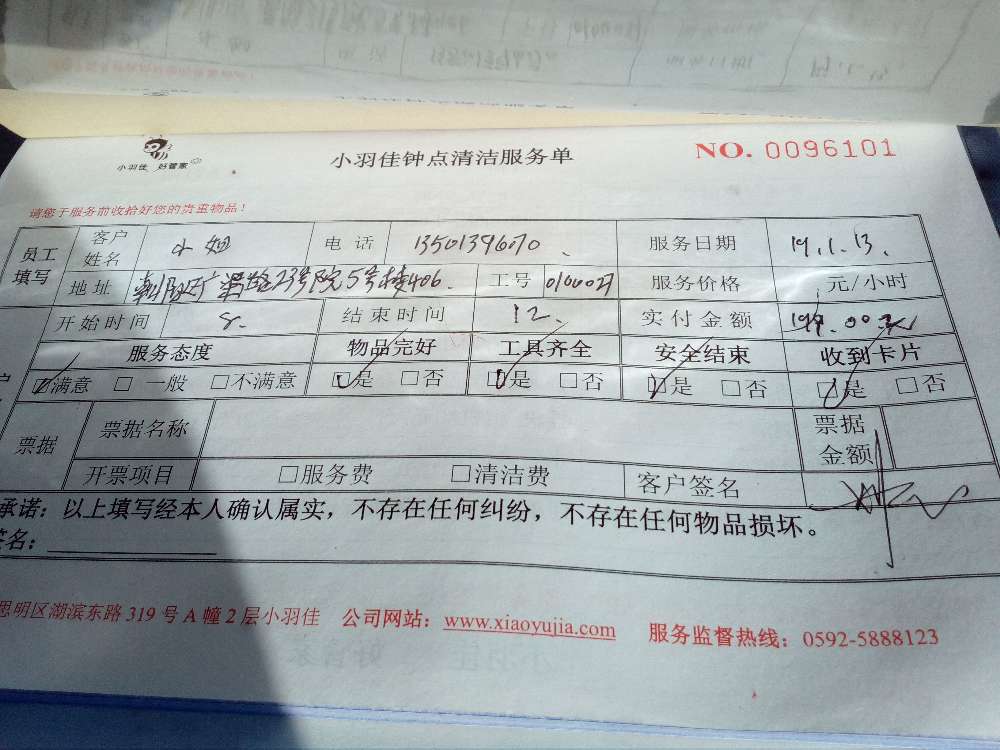 小羽佳 好管家
小羽佳钟点清洁服务单
NO. 0096101
请您于服务前收拾好您的贵重物品！
员工填写 客户姓名 小姐 电话 1350139670 服务日期 19.1.13.
地址 23号院5号楼406. 工号 服务价格 元/小时
开始时间 8. 结束时间 12. 实付金额
服务态度 物品完好 工具齐全 安全结束 收到卡片
☑满意 □一般 □不满意 ☑是 □否 ☑是 □否 ☑是 □否 ☑是 □否
票据 票据名称 票据金额
开票项目 □服务费 □清洁费 客户签名
承诺：以上填写经本人确认属实，不存在任何纠纷，不存在任何物品损坏。
签名：
思明区湖滨东路 319 号 A 幢 2 层小羽佳 公司网站：www.xiaoyujia.com 服务监督热线：0592-5888123